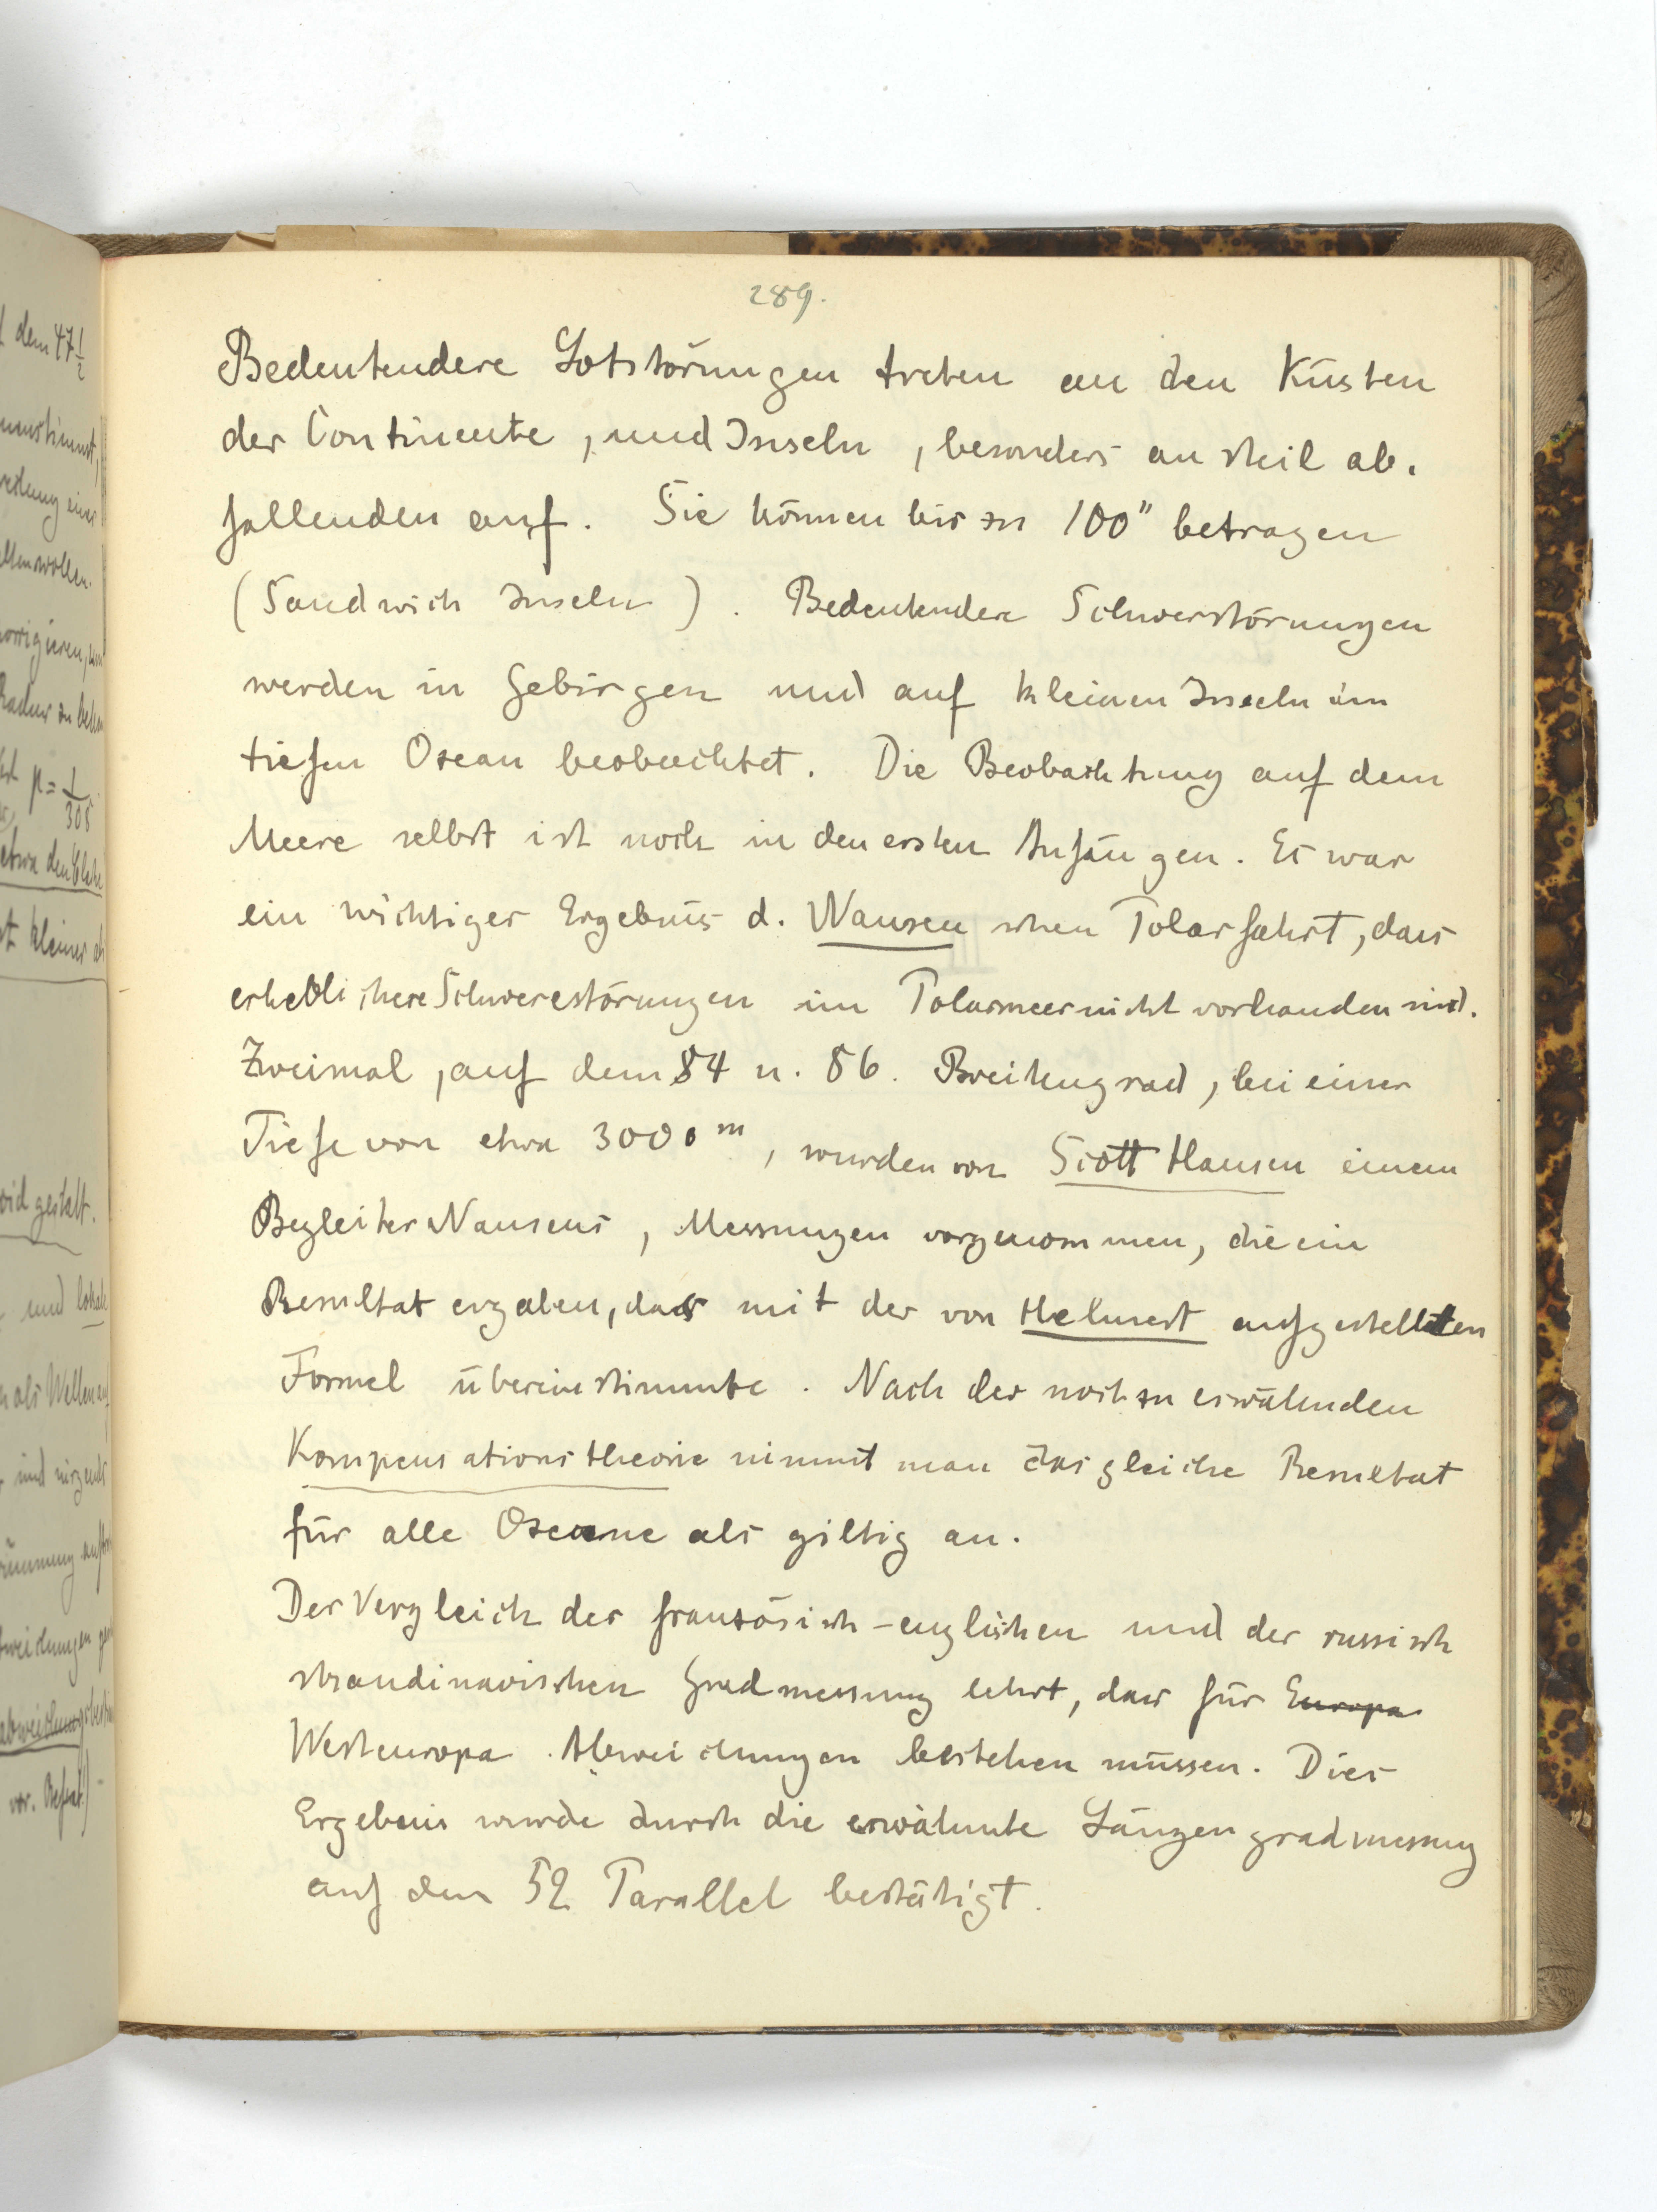 289.
Bedeutendere Lotstörungen treten an den Küsten
der Continente, und Inseln, besonders an steil ab-
fallenden auf. Sie können bis zu 100" betragen
(Sandwich Inseln). Bedeutendere Schwerstörungen
werden in Gebirgen und auf kleinen Inseln im
tiefen Ozean beobachtet. Die Beobachtung auf dem
Meere selbst ist noch in den ersten Anfängen. Es war
ein wichtiges Ergebnis d. Nansen schen Polarfahrt, dass
erheblichere Schwerestörungen im Polarmeer nicht vorhanden sind.
Zweimal, auf dem 84 u. 86. Breitengrad, bei einer
Tiefe von etwa 3000 m, wurden von Scott Hansen einem
Begleiter Nansens, Messungen vorgenommen, die ein
Resultat ergaben, das mit der von Helmert aufgestellten
Formel übereinstimmte. Nach der noch zu erwähnenden
Kompensationstheorie nimmt man das gleiche Resultat
für alle Ozeane als giltig an.
Der Vergleich der französisch-englischen und der russisch
skandinavischen Gradmessung lehrt, dass für Europa
Westeuropa Abweichungen bestehen müssen. Dies
Ergebnis wurde durch die erwähnte Längengradmessung
auf dem 52 Parallel bestätigt.